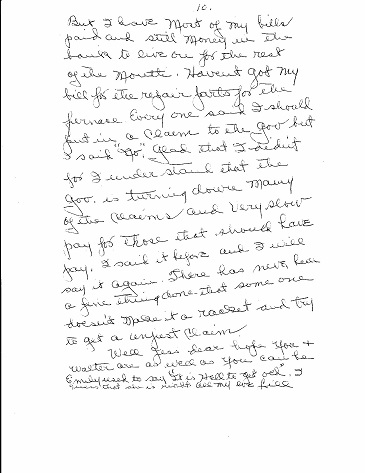 10.
But I have Most of my bills
paid and still Money in the
bank to live on for the rest
of the Month. Havent got my
bill for the repair parts for the
furnace Every one said I should
put in a Claim to the Gov but
I said "No" Glad that I didn't
for I under stand that the
Gov. is turning down Many
of the Claims and Very slow
pay for those that should have
pay. I said it before and I will
say it again. There has never been
a fine thing done that some one
doesn't Make it a racket and try
to get a unjust Claim
Well Jess dear hope You +
Walter are as well as You can be
Emily used to say "It is Hell to get old". I
guess that she is right all my love